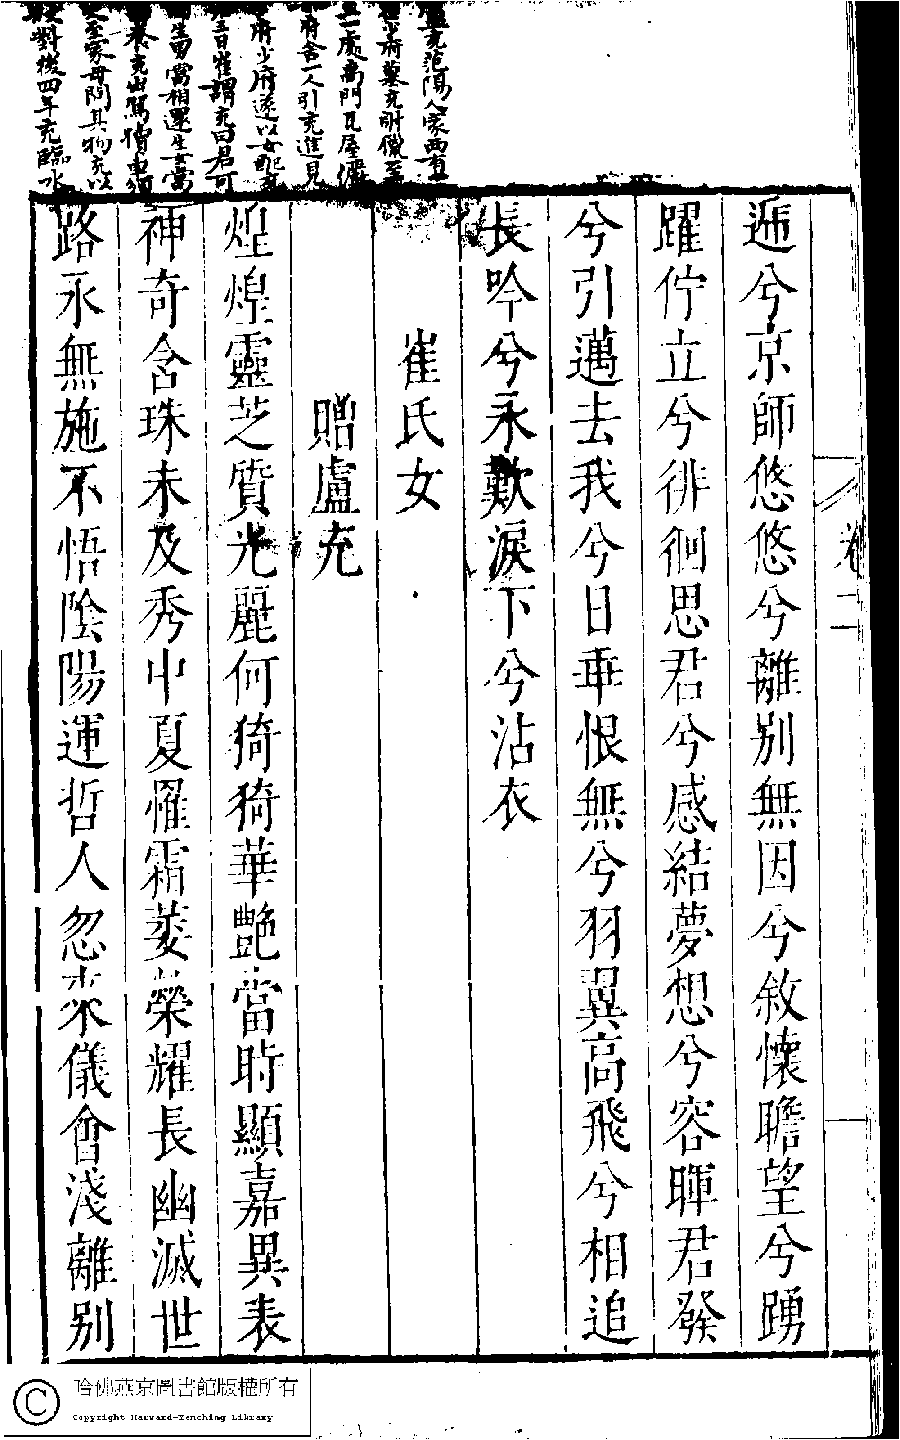 卷二
遞兮京師悠悠兮離别無因兮敘懷瞻望兮踴
躍佇立兮徘徊思君兮感結夢想兮容暉君發
兮引邁去我兮日乖恨無兮羽翼高飛兮相追
長吟兮永歎淚下兮沾衣
崔氏女
贈盧充
煌煌靈芝質光麗何猗猗華艶當時顯嘉異表
神奇含珠未及秀中夏罹霜萎榮耀長幽滅世
路永無施不悟陰陽運哲人忽來儀會淺離别
盧充范陽人家西有
少府墓充
一處高門瓦屋
府舍一人引充進見
府少府遂以女配充
三日崔謂充曰君可
生男當相還生女當
至家母問其物充以
對後四年充臨水
哈佛燕京圖書館版權所有
Copyright Harvard-Yenching Library